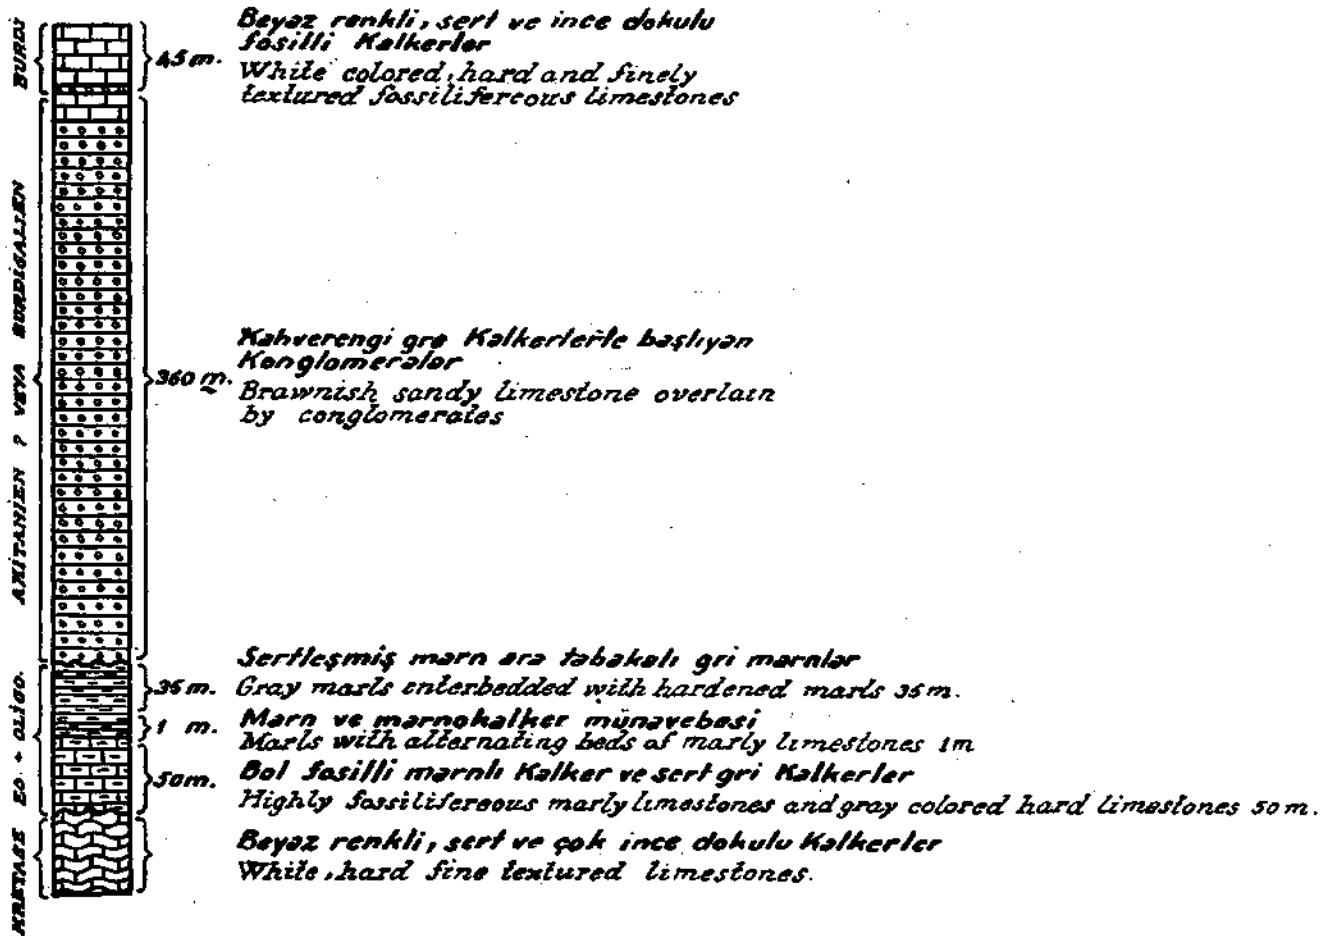 BURDİ
45 m.
Beyaz renkli, sert ve ince dokulu
fosilli Kalkerler
White colored, hard and finely
textured fossilifereous limestones
AKİTANİEN ? VEYA BURDİGALİEN
360 m.
Kahverengi gre Kalkerlerle başlıyan
Konglomeralar
Brawnish sandy limestone overlain
by conglomerates
EO. + OLİGO.
35 m.
Sertleşmiş marn ara tabakalı gri marnlar
Gray marls enterbedded with hardened marls 35 m.
1 m.
Marn ve marnokalker münavebesi
Marls with alternating beds of marly limestones 1m
50m.
Bol fosilli marnlı Kalker ve sert gri Kalkerler
Highly fossilifereous marly limestones and gray colored hard limestones 50 m.
KRETASE
Beyaz renkli, sert ve çok ince dokulu Kalkerler
White, hard fine textured limestones.